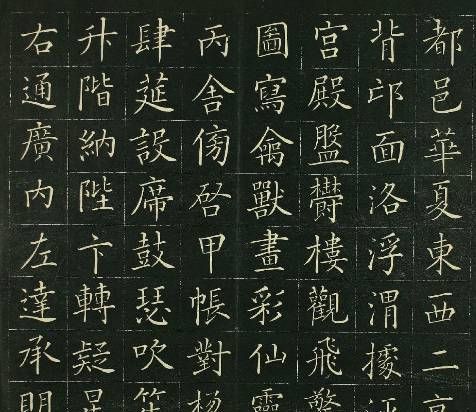 都邑華夏東西二京
背邙面洛浮渭據涇
宫殿盤欝樓觀飛驚
圖寫禽獸畫彩仙靈
丙舍傍啓甲帳對楹
肆筵設席鼓瑟吹笙
升階納陛卞轉疑星
右通廣内左達承明